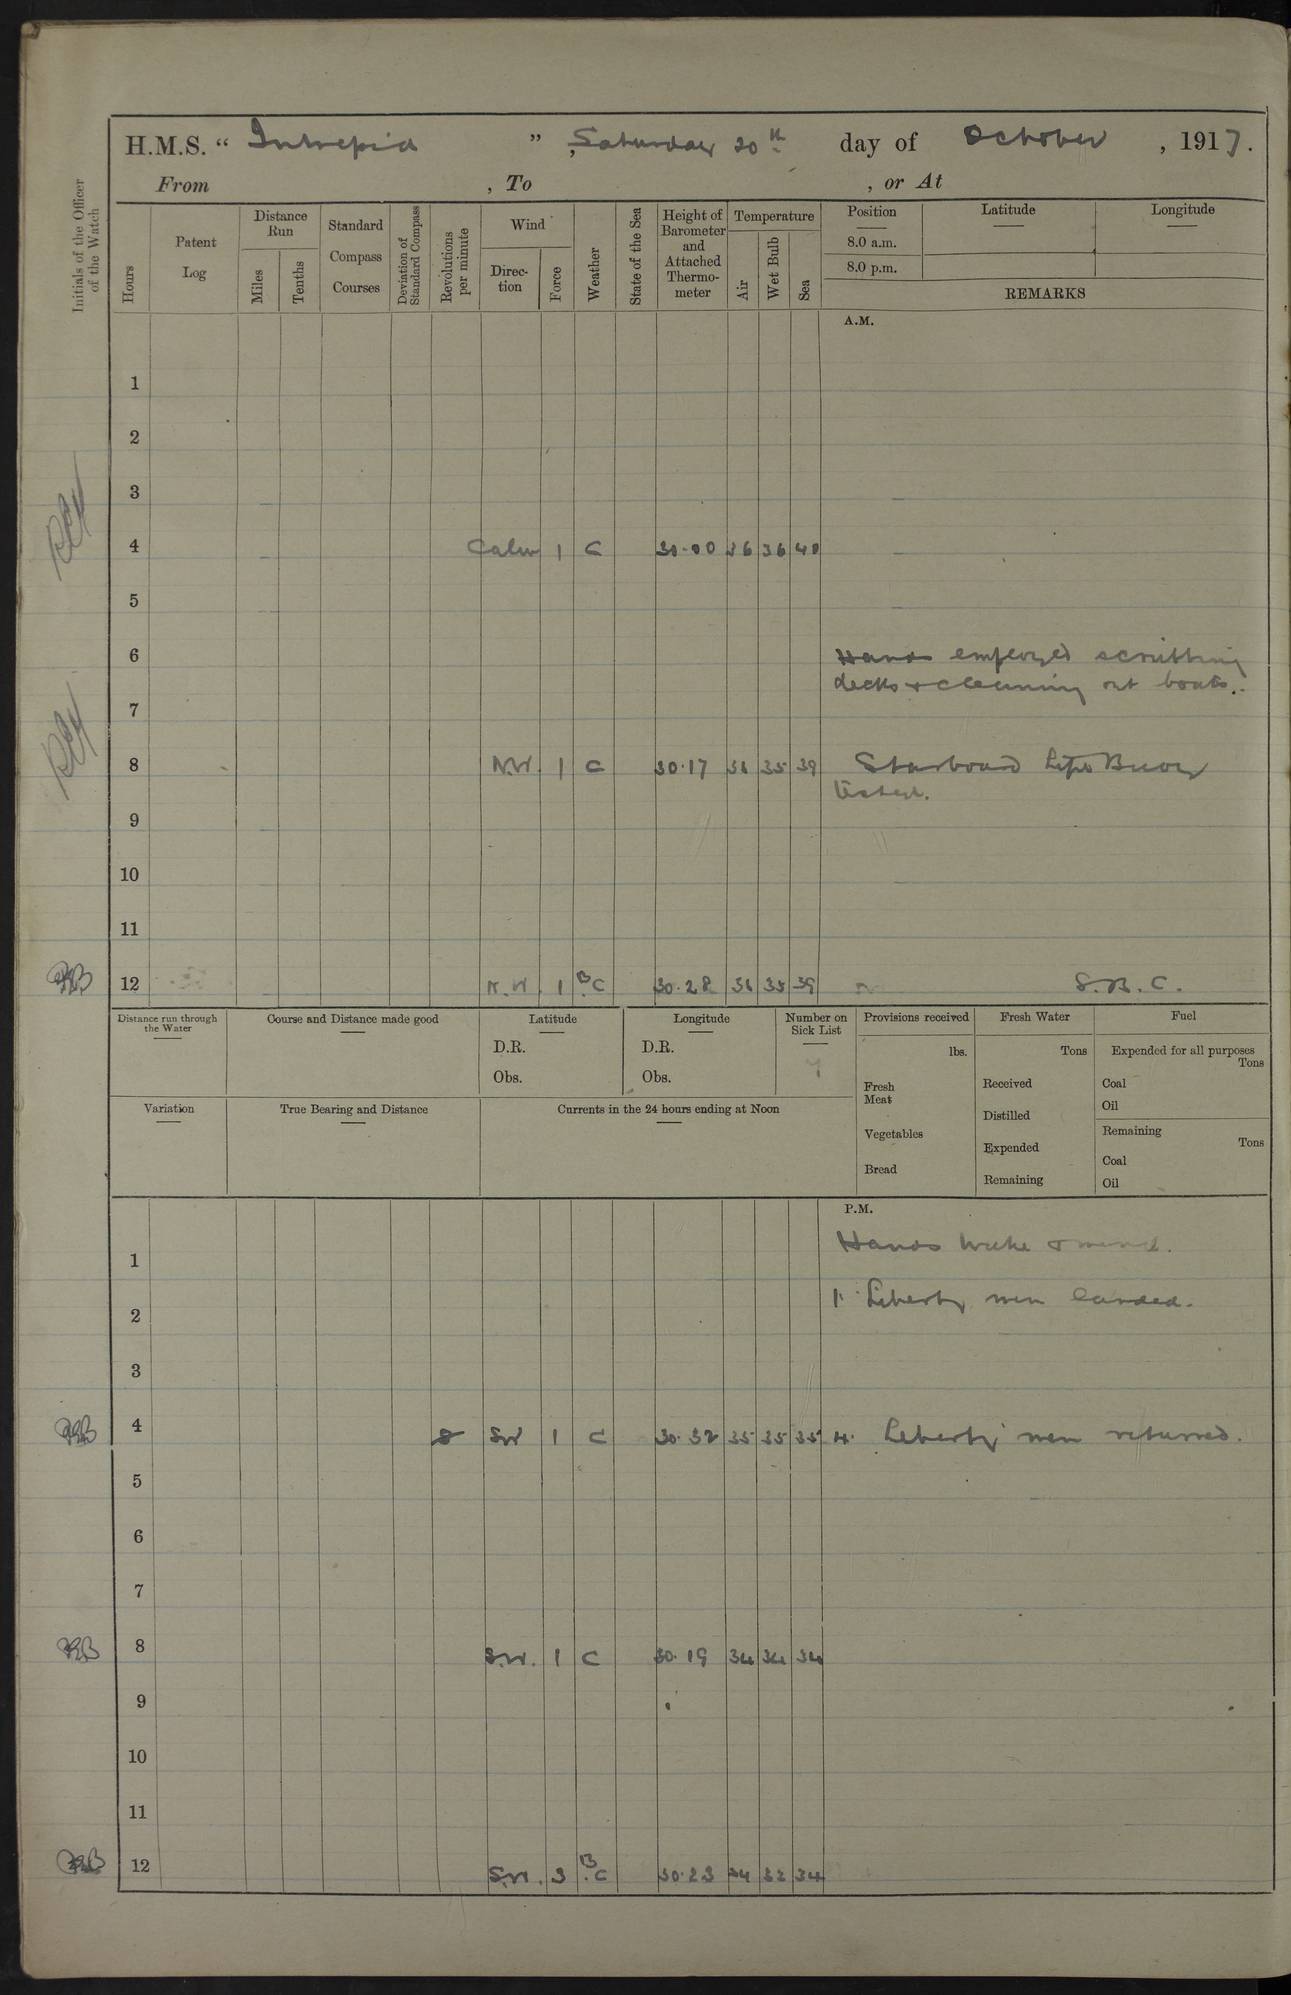 H.M.S. “ Intrepid ” , Saturday 20th day of October , 1917.
From , To , or At
Initials of the Officer of the Watch
Hours
Patent Log
Distance Run
Miles
Tenths
Standard Compass Courses
Deviation of Standard Compass
Revolutions per minute
Wind
Direc-tion
Force
Weather
State of the Sea
Height of Barometer and Attached Thermo-meter
Temperature
Air
Wet Bulb
Sea
Position
8.0 a.m.
8.0 p.m.
Latitude
Longitude
REMARKS
A.M.
1
2
3
4 Calm 1 C 30.00 36 36 40
5
6 Hands employed scrubbing
decks & cleaning out boats.
7
8 N.W. 1 C 30.17 36 35 39 Starboard Life Buoy
tested.
9
10
11
12 N.W. 1 B.C 30.28 36 35 39 S.B.C.
Distance run through the Water
Course and Distance made good
Latitude
D.R.
Obs.
Longitude
D.R.
Obs.
Number on Sick List
7
Provisions received
lbs.
Fresh Meat
Vegetables
Bread
Fresh Water
Tons
Received
Distilled
Expended
Remaining
Fuel
Expended for all purposes
Tons
Coal
Oil
Remaining
Tons
Coal
Oil
Variation
True Bearing and Distance
Currents in the 24 hours ending at Noon
P.M.
Hands make & mend.
1
1. Liberty men landed.
2
3
4 SW 1 C 30.32 35 35 35 4. Liberty men returned.
5
6
7
8 S.W. 1 C 30.19 34 34 34
9
10
11
12 S.W. 3 B.C 30.23 34 32 34